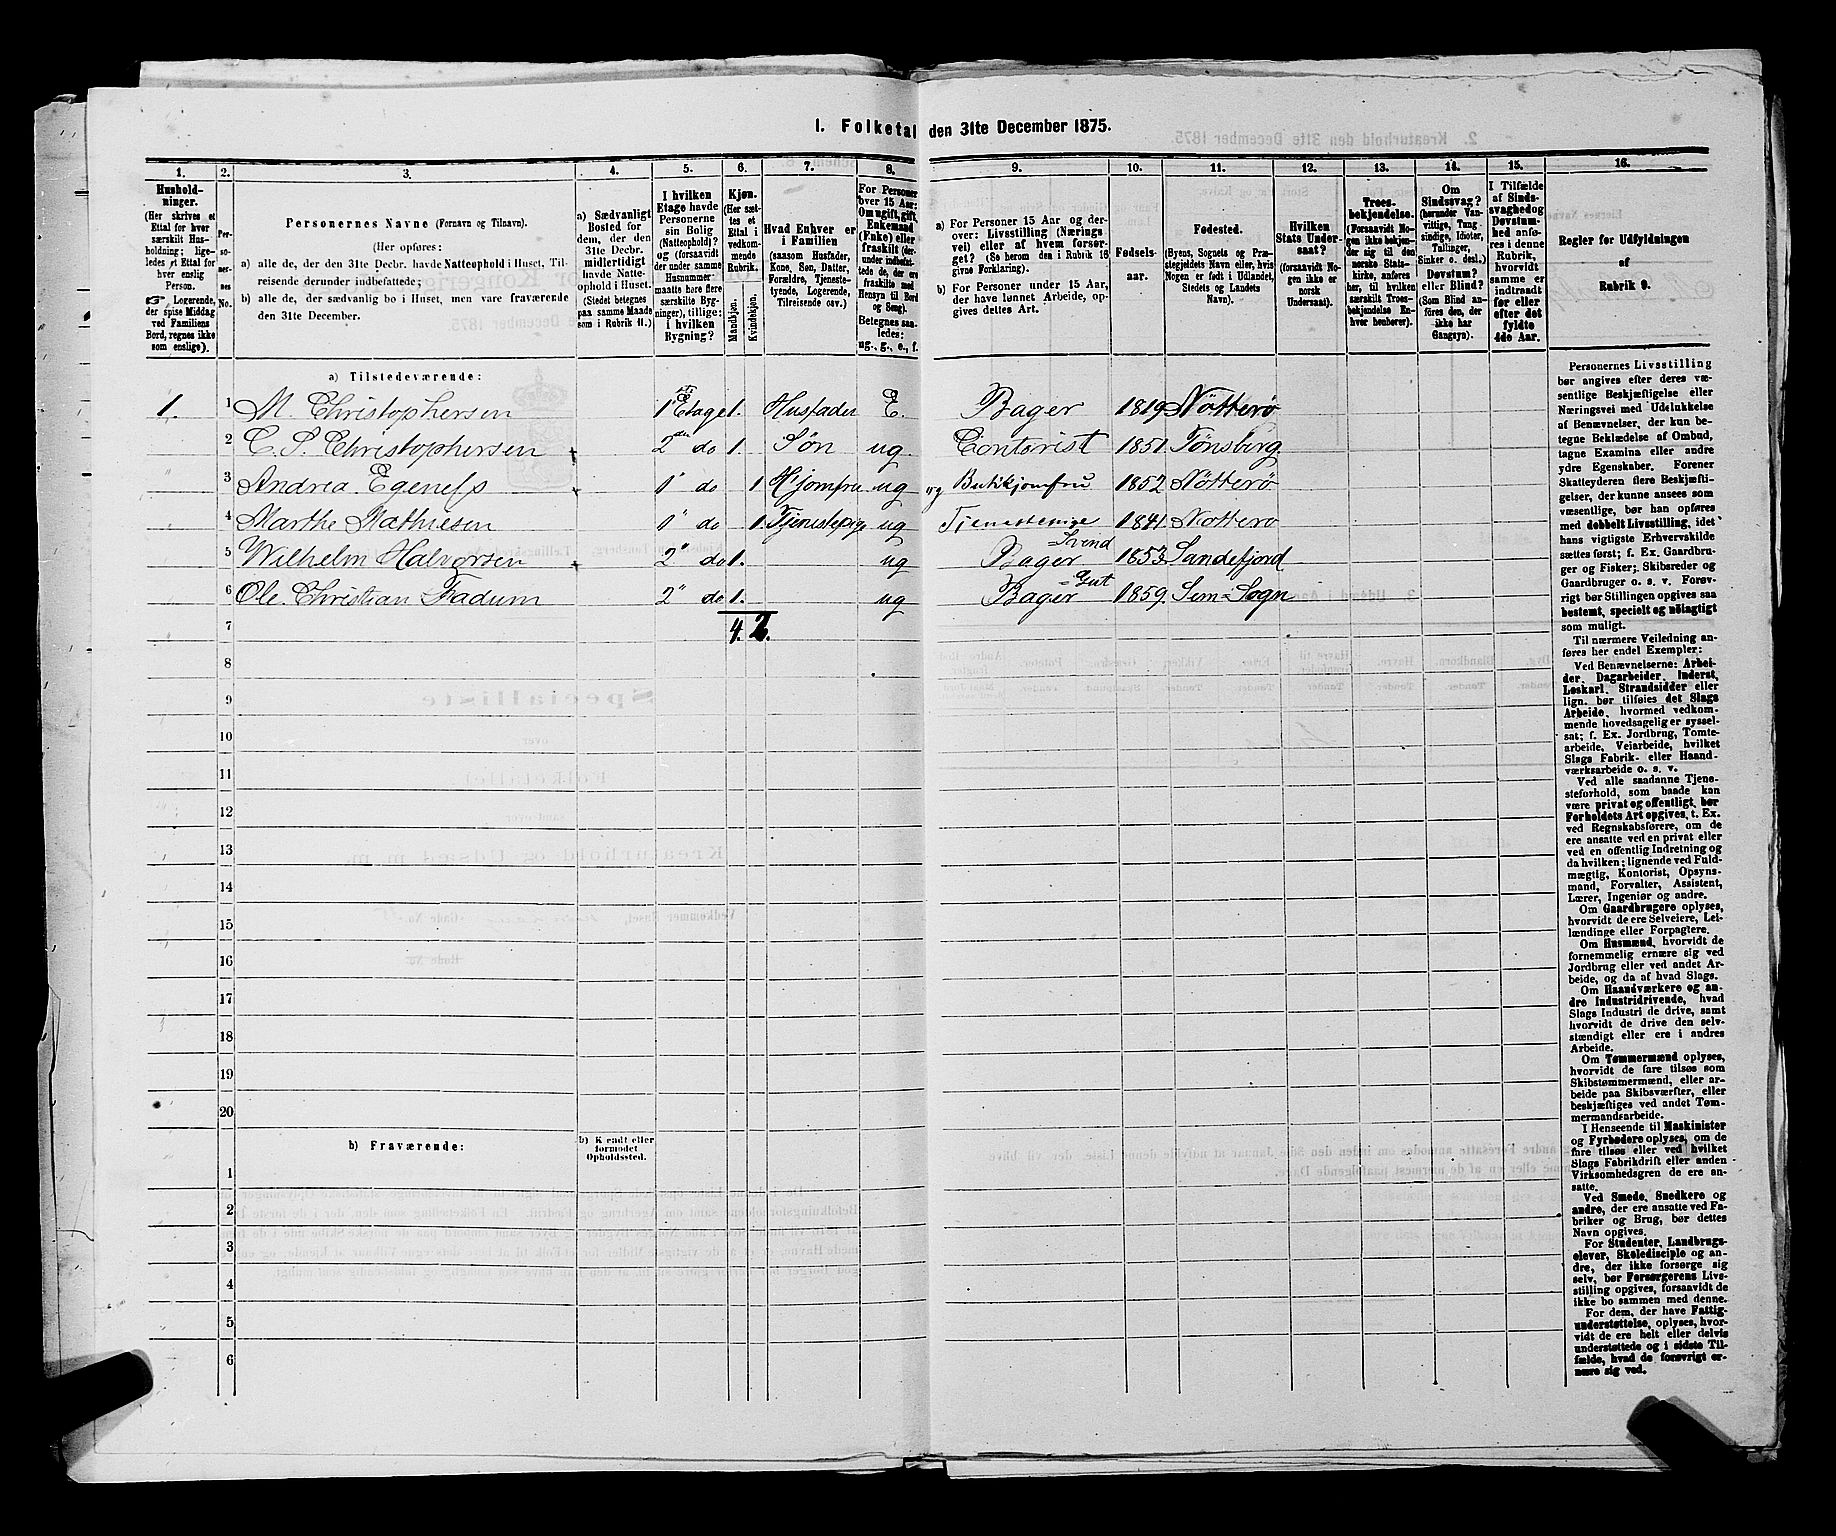 I. Folketal den 31te December 1875.
1. 2. 3. 4. 5. 6. 7. 8. 9. 10. 11. 12. 13. 14. 15. 16.
Husholdninger.
(Her skrives et Ettal for hver særskilt Husholdning; ligeledes et Ettal for hver enslig Person.
☞ Logerende, der spise Middag ved Familiens Bord, regnes ikke som enslige).
Personernes No.
Personernes Navne (Fornavn og Tilnavn).
(Her opføres:
a) alle de, der den 31te Decbr. havde Natteophold i Huset, Tilreisende derunder indbefattede;
b) alle de, der sædvanlig bo i Huset, men vare fraværende den 31te December.
a) Sædvanligt Bosted for dem, der den 31te Decbr. midlertidigt havde Natteophold i Huset.
(Stedet betegnes paa samme Maade som i Rubrik 11.)
I hvilken Etage havde Personerne sin Bolig (Natteophold)? og (forsaavidt der under samme Husnummer maatte høre flere særskilte Bygninger), tillige: i hvilken Bygning?
Kjøn.
(Her sættes et Ettal i vedkommende Rubrik.
Mandkjøn. Kvindekjøn.
Hvad Enhver er i Familien
(saasom Husfader, Kone, Søn, Datter, Forældre, Tjenestetyende, Logerende, Tilreisende osv.)
For Personer over 15 Aar: Om ugift, gift, Enkemand (Enke) eller fraskilt (derunder indbefattede de, der ere fraskilte med Hensyn til Bord og Seng).
Betegnes saaledes: ug., g., e., f.
a) For Personer 15 Aar og derover: Livsstilling (Næringsvei) eller af hvem forsørget? (Se herom den i Rubrik 16 givne Forklaring).
b) For Personer under 15 Aar, der have lønnet Arbeide, opgives dettes Art.
Fødselsaar.
Fødested.
(Byens, Sognets og Præstegjeldets Navn eller, hvis Nogen er født i Udlandet, Stedets og Landets Navn).
Hvilken Stats Undersaat?
(forsaavidt Nogen ikke er norsk Undersaat).
Troesbekjendelse.
(Forsaavidt Nogen ikke bekjender sig til den norske Statskirke, anføres her, til hvilken særskilt Troesbekjendelse Enhver henhører).
Om Sindssvag? (herunder Vanvittige, Tungsindige, Idioter, Tullinger, Sinker o. desl.)
Døvstum? eller Blind?
(Som Blind anføres den, der ikke har Gangsyn).
I Tilfælde af Sindssvaghed og Døvstumhed anføres i denne Rubrik, hvorvidt samme er indtraadt før eller efter det fyldte 4de Aar.
Regler for Udfyldningen af Rubrik 9.
a) Tilstedeværende:
1. 1 M. Christophersen 1ste Etage 1. Husfader E. Bager 1819 Nötterö
2 C. S. Christophersen 2den do 1. Søn ug. Contorist 1851. Tønsberg.
3 Andrea Egeness 1" do 1. H'jomfru ug Butikjomfru 1852 Nötterö
4 Marthe Mathiesen 1" do 1. Tjenestepige ug Tjenestepige 1841. Nötterö
5 Wilhelm Halvorsen 2" do 1. ug Bager=Svend 1853. Sandefjord
6 Ole Christian Fadum 2" do 1. ug Bager=Gut 1859. Sem=Sogn
7 4. 2.
8
9
10
11
12
13
14
15
16
17
18
19
20
b) Fraværende:
b) Kjendt eller formodet Opholdssted.
1
2
3
4
5
6
Personernes Livsstilling
bør angives efter deres væsentlige Beskjæftigelse eller
Næringsvei med Udelukkelse
af Benævnelser, der kun betegne Beklædelse af Ombud,
tagne Examina eller andre
ydre Egenskaber. Forener
Skatteyderen flere Beskjæftigelser, der kunne ansees som
væsentlige, bør han opføres
med dobbelt Livsstilling, idet
hans vigtigste Erhvervskilde
sættes først; f. Ex. Gaardbruger og Fisker; Skibsreder og
Gaardbruger o. s. v. Forøvrigt bør Stillingen opgives saa
bestemt, specielt og nöiagtigt
som muligt.
Til nærmere Veiledning anføres her endel Exempler:
Ved Benævnelserne: Arbeider, Dagarbeider, Inderst,
Løskarl, Strandsidder eller
lign. bør tilføies det Slags
Arbeide, hvormed vedkommende hovedsagelig er sysselsat; f. Ex. Jordbrug, Tomtearbeide, Veiarbeide, hvilket
Slags Fabrik- eller Haandværksarbeide o. s. v.
Ved alle saadanne Tjenesteforhold, som baade kan
være privat og offentligt, bør
Forholdets Art opgives, t. Ex.
ved Regnskabsførere, om de
ere ansatte ved en privat eller
ved en offentlig Indretning og
da hvilken; lignende ved Fuldmægtig, Kontorist, Opsynsmand, Forvalter, Assistent,
Lærer, Ingeniør og andre.
Om Gaardbrugere oplyses,
hvorvidt de ere Selveiere, Leilændinge eller Forpagtere.
Om Husmænd, hvorvidt de
fornemmelig ernære sig ved
Jordbrug eller ved andet Arbeide, og da af hvad Slags.
Om Haandværkere og andre Industridrivende, hvad
Slags Industri de drive, samt
hvorvidt de drive den selvstændigt eller ere i andres
Arbeide.
Om Tømmermænd oplyses,
hvorvidt de fare tilsøs som
Skibstømmermænd, eller arbeide paa Skibsværfter, eller
beskjæftiges ved andet Tømmermandsarbeide.
I Henseende til Maskinister
og Fyrbødere oplyses, om de
fare tilsøs eller ved hvilket
Slags Fabrikdrift eller anden
Virksomhedsgren de ere ansatte.
Ved Smede, Snedkere og
andre, der ere ansatte ved Fabriker og Brug, bør dettes
Navn opgives.
For Studenter, Landbrugselever, Skoledisciple og andre, der ikke forsørge sig
selv, bør Forsørgerens Livsstilling opgives, forsaavidt de
ikke bo sammen med denne.
For dem, der have Fattigunderstøttelse, oplyses, hvorvidt de ere helt eller delvis
understøttede og i sidste Tilfælde, hvad de forøvrigt ernære sig ved.